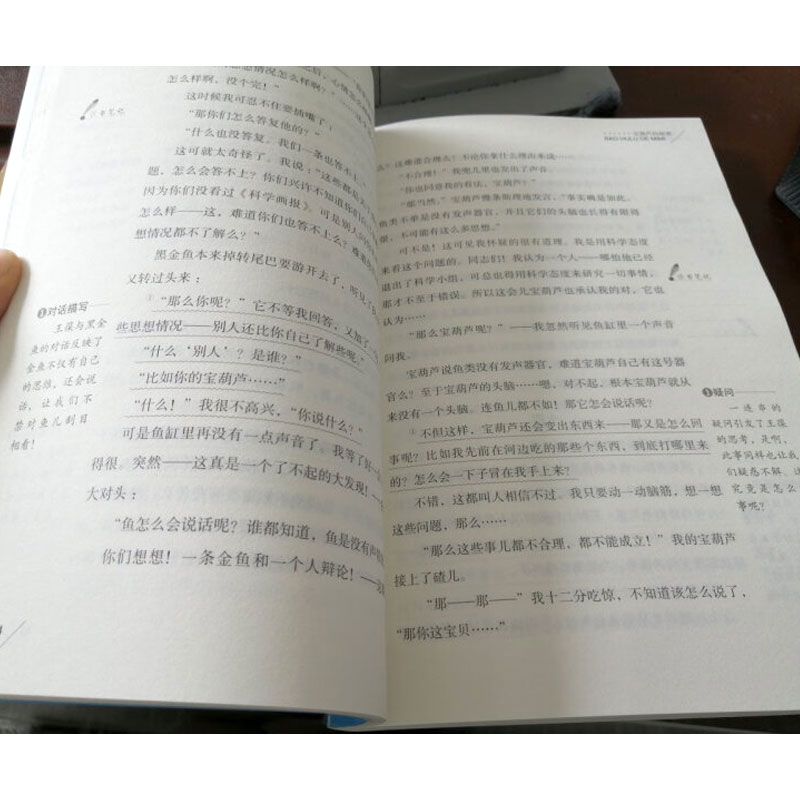 怎么样啊，没个完！”
这时候我可忍不住要插嘴了：
“那你们怎么答复他的？”
“什么也没答复。我们一条也答不上
这可就太奇怪了。我说：“这些都是
题，怎么会答不上？你们兴许不知道你们
因为你们没看过《科学画报》，可是别人问
怎么样——这，难道你们也答不上么？难道
想情况都不了解么？”
黑金鱼本来掉转尾巴要游开去了，听见了我
又转过头来：
①“那么你呢？”它不等我回答，又加了
些思想情况——别人还比你自己了解些呢。”
“什么‘别人’？是谁？”
“比如你的宝葫芦……”
“什么！”我很不高兴，“你说什么？”
可是鱼缸里再没有一点声音了。我等了好一
得很。突然——这真是一个了不起的大发现！
大对头：
“鱼怎么会说话呢？谁都知道，鱼是没有声
你们想想！一条金鱼和一个人辩论！——这
读书笔记
❶对话描写
王葆与黑金
鱼的对话反映了
金鱼不仅有自己
的思维，还会说
话，让我们不
禁对鱼儿刮目
相看！
宝葫芦的秘密
BAO HULU DE MIMI
么？这难道合理么？不论你拿什么理由来说……
“不合理！”我兜儿里忽发出了声音。
“你也同意我的看法，宝葫芦？”
“那当然，”宝葫芦慢条斯理地发言，“事实确是如此。
鱼类不单是没有发声器官，并且它们的头脑也长得有限得
很，不可能有这么多思想。”
可不是！这可见我怀疑的很有道理。我是用科学态度
来看这个问题的。同志们！我认为一个人——哪怕他已经
退出了科学小组，可总也得用科学态度来研究一切事情，
那才不至于错误。所以这会儿宝葫芦也承认我的对，它也
认为……
“那么宝葫芦呢？”——我忽然听见鱼缸里一个声音
问我。
宝葫芦说鱼类没有发声器官，难道宝葫芦自己有这号器
官么？至于宝葫芦的头脑……嗯，对不起，根本宝葫芦就从
来没有一个头脑。连鱼儿都不如！那它怎么会说话呢？
②不但这样，宝葫芦还会变出东西来——那又是怎么回
事呢？比如我先前在河边吃的那些个东西，到底打哪里来
的？怎么会一下子冒在我手上来？
不错，这都叫人相信不过。我只要动一动脑筋，想一想
这些问题，那么……
“那么这些事儿都不合理，都不能成立！”我的宝葫芦
接上了碴儿。
“那——那——”我十二分吃惊，不知道该怎么说了，
“那你这宝贝……”
读书笔记
❷疑问
一连串的
疑问引发了王葆
的思考，是啊，
此事同样也让我
们疑惑不解，这
究竟是怎么
事呢？